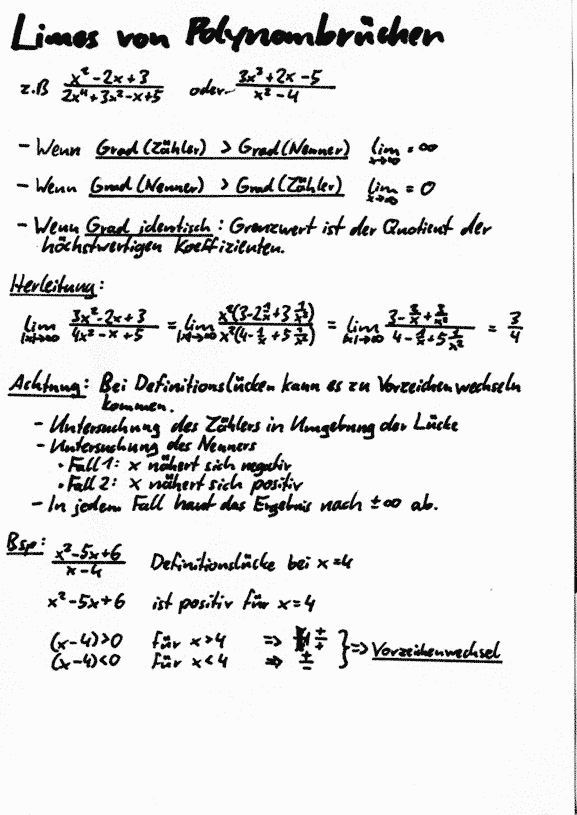 Limes von Polynombrüchen
z.B (x²-2x+3)/(2x⁴+3x²-x+5) oder (3x³+2x-5)/(x²-4)
- Wenn Grad(Zähler) > Grad(Nenner) lim x→∞ = ∞
- Wenn Grad(Nenner) > Grad(Zähler) lim x→∞ = 0
- Wenn Grad identisch: Grenzwert ist der Quotient der
höchstwertigen Koeffizienten.
Herleitung:
lim |x|→∞ (3x²-2x+3)/(4x²-x+5) = lim |x|→∞ (x²(3-2 1/x+3 1/x²))/(x²(4-1/x+5 1/x²)) = lim |x|→∞ (3-2/x+3/x²)/(4-1/x+5 1/x²) = 3/4
Achtung: Bei Definitionslücken kann es zu Vorzeichenwechseln
kommen.
- Untersuchung des Zählers in Umgebung der Lücke
- Untersuchung des Nenners
• Fall 1: x nähert sich negativ
• Fall 2: x nähert sich positiv
- In jedem Fall haut das Ergebnis nach ±∞ ab.
Bsp: (x²-5x+6)/(x-4) Definitionslücke bei x=4
x²-5x+6 ist positiv für x=4
(x-4)>0 für x>4 => +/+
(x-4)<0 für x<4 => +/- } => Vorzeichenwechsel